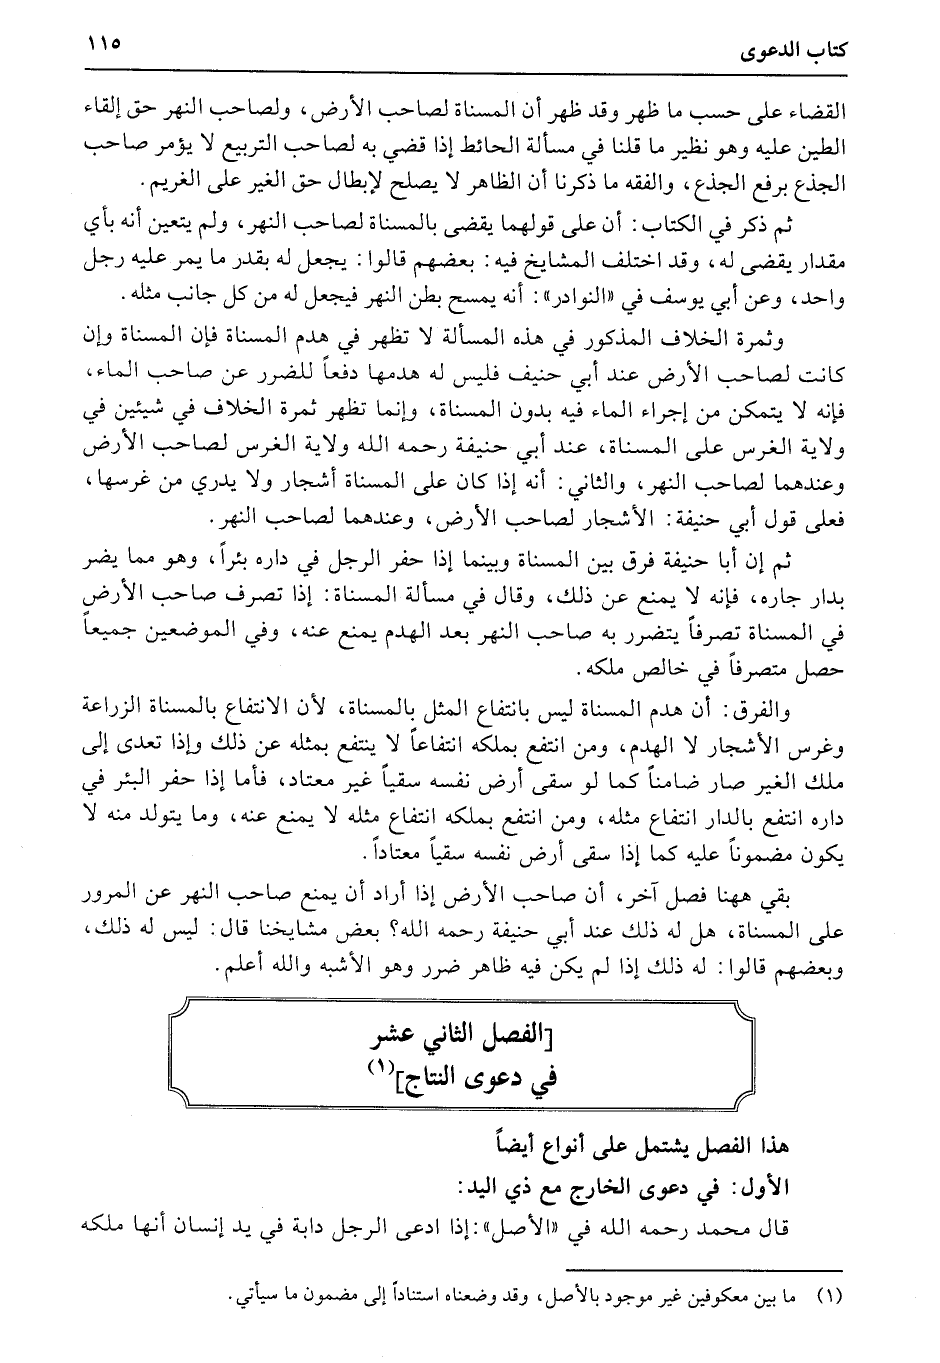 كتاب الدعوى
١١٥
القضاء على حسب ما ظهر وقد ظهر أن المسناة لصاحب الأرض، ولصاحب النهر حق إلقاء
الطين عليه وهو نظير ما قلنا في مسألة الحائط إذا قضي به لصاحب التربيع لا يؤمر صاحب
الجذع برفع الجذع، والفقه ما ذكرنا أن الظاهر لا يصلح لإبطال حق الغير على الغريم.
ثم ذكر في الكتاب: أن على قولهما يقضى بالمسناة لصاحب النهر، ولم يتعين أنه بأي
مقدار يقضى له، وقد اختلف المشايخ فيه: بعضهم قالوا: يجعل له بقدر ما يمر عليه رجل
واحد، وعن أبي يوسف في «النوادر»: أنه يمسح بطن النهر فيجعل له من كل جانب مثله.
وثمرة الخلاف المذكور في هذه المسألة لا تظهر في هدم المسناة فإن المسناة وإن
كانت لصاحب الأرض عند أبي حنيف فليس له هدمها دفعاً للضرر عن صاحب الماء،
فإنه لا يتمكن من إجراء الماء فيه بدون المسناة، وإنما تظهر ثمرة الخلاف في شيئين في
ولاية الغرس على المسناة، عند أبي حنيفة رحمه الله ولاية الغرس لصاحب الأرض
وعندهما لصاحب النهر، والثاني: أنه إذا كان على المسناة أشجار ولا يدري من غرسها،
فعلى قول أبي حنيفة: الأشجار لصاحب الأرض، وعندهما لصاحب النهر.
ثم إن أبا حنيفة فرق بين المسناة وبينما إذا حفر الرجل في داره بئراً، وهو مما يضر
بدار جاره، فإنه لا يمنع عن ذلك، وقال في مسألة المسناة: إذا تصرف صاحب الأرض
في المسناة تصرفاً يتضرر به صاحب النهر بعد الهدم يمنع عنه، وفي الموضعين جميعاً
حصل متصرفاً في خالص ملكه.
والفرق: أن هدم المسناة ليس بانتفاع المثل بالمسناة، لأن الانتفاع بالمسناة الزراعة
وغرس الأشجار لا الهدم، ومن انتفع بملكه انتفاعاً لا ينتفع بمثله عن ذلك وإذا تعدى إلى
ملك الغير صار ضامناً كما لو سقى أرض نفسه سقياً غير معتاد، فأما إذا حفر البئر في
داره انتفع بالدار انتفاع مثله، ومن انتفع بملكه انتفاع مثله لا يمنع عنه، وما يتولد منه لا
يكون مضموناً عليه كما إذا سقى أرض نفسه سقياً معتاداً.
بقي ههنا فصل آخر، أن صاحب الأرض إذا أراد أن يمنع صاحب النهر عن المرور
على المسناة، هل له ذلك عند أبي حنيفة رحمه الله؟ بعض مشايخنا قال: ليس له ذلك،
وبعضهم قالوا: له ذلك إذا لم يكن فيه ظاهر ضرر وهو الأشبه والله أعلم.
[الفصل الثاني عشر
في دعوى النتاج](١)
هذا الفصل يشتمل على أنواع أيضاً
الأول: في دعوى الخارج مع ذي اليد:
قال محمد رحمه الله في «الأصل»: إذا ادعى الرجل دابة في يد إنسان أنها ملكه
(١) ما بين معكوفين غير موجود بالأصل، وقد وضعناه استناداً إلى مضمون ما سيأتي.